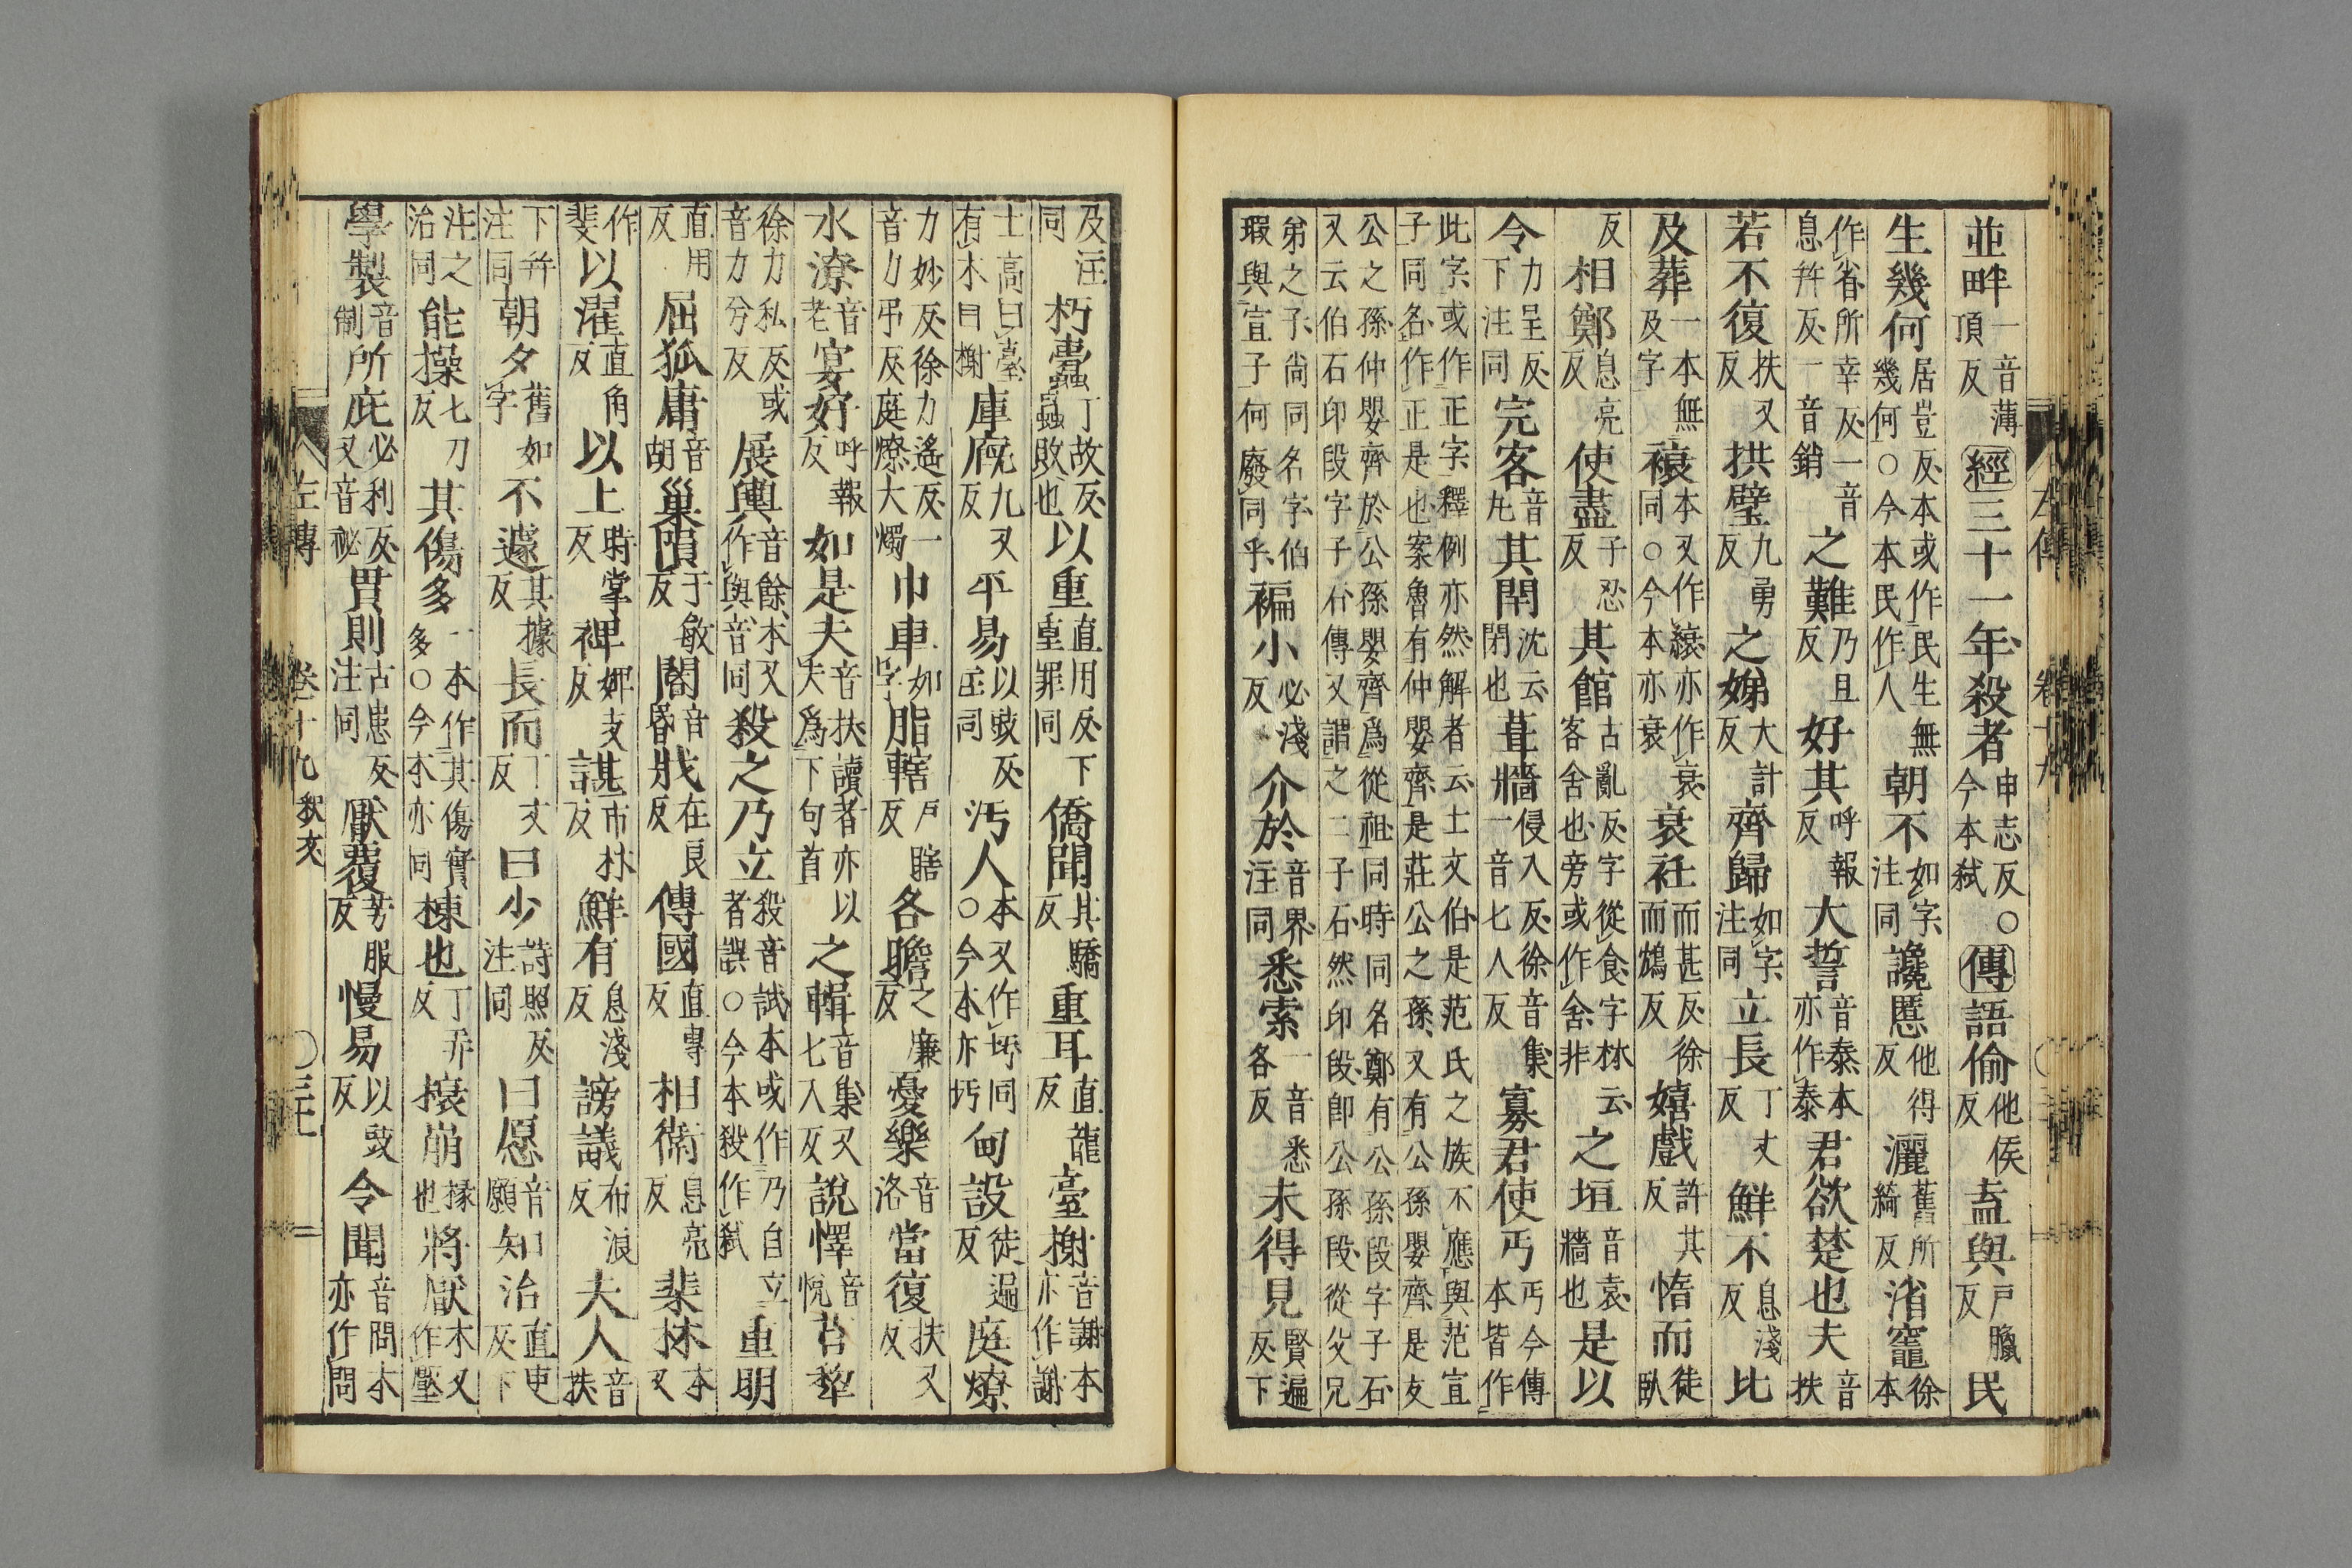 並畔一音薄頂反經三十一年殺者申志反○今本弑傳語偷他侯反盍與戸臘反民
生幾何居豈反本或作民生無幾何○今本民作人朝不如字注同讒慝他得反灑舊所綺反渻竈徐本
作省所幸反一音息幷反一音銷之難乃旦反好其呼報反大誓音泰本亦作泰君欲楚也夫音扶
若不復扶又反拱璧九勇反之娣大計反齊歸如字注同立長丁丈反鮮不息淺反比
及葬一本無及字䙚本又作縗亦作衰同○今本亦衰衰衽而甚反徐而鴆反嬉戲許其反惰而徒臥
反相鄭息亮反使盡子忍反其館古亂反字從食字林云客舍也旁或作舍非之垣音袁牆也是以
令力呈反下注同完客音丸其閈沈云閉也葺牆侵入反徐音集一音七人反寡君使丐丐今傳本皆作
此字或作正字釋例亦然解者云士文伯是范氏之族不應與范宣子同名作正是也案魯有仲嬰齊是莊公之孫又有公孫嬰齊是文
公之孫仲嬰齊於公孫嬰齊爲從祖同時同名鄭有公孫段字子石又云伯石印段字子石傳又謂之二子石然印段卽公孫段從父兄
弟之子尙同名字伯瑕與宣子何廢同乎褊小必淺反介於音界注同悉索一音悉各反未得見賢遍反下
及注同朽蠹丁故反蟲敗也以重直用反下重罪同僑聞其驕反重耳直龍反臺榭音謝本亦作謝
土高曰臺有木曰榭庫廄九又反平易以豉反注同汚人本又作圬同○今本亦圬甸設徒遍反庭燎
力妙反徐力遙反一音力弔反庭燎大燭巾車如字脂轄戸瞎反各瞻之廉反憂樂音洛當復扶又反
水潦音老宴好呼報反如是夫音扶讀者亦以夫爲下句首之輯音集又七入反說懌音悅莒犂
徐力私反或音力兮反展輿音餘本又作與音同殺之乃立殺音試本或作乃自立者誤○今本殺作弑重明
直用反屈狐庸音胡巢隕于敏反閽音昬戕在良反傳國直專反相衞息亮反棐林本又
作斐以濯直角反以上時掌反裨婢支反諶市林反鮮有息淺反謗議布浪反夫人音扶
下幷注同朝夕舊如字不遽其據反長而丁丈反曰少詩照反注同曰愿音願知治直吏反下
注之治同能操七刀反其傷多一本作其傷實多○今本亦同棟也丁弄反榱崩椽也將厭本又作壓
學製音制所庇必利反又音祕貫則古患反注同厭覆芳服反慢易以豉反令聞音問本亦作問
左傳 卷十九 釈文 ○三十一